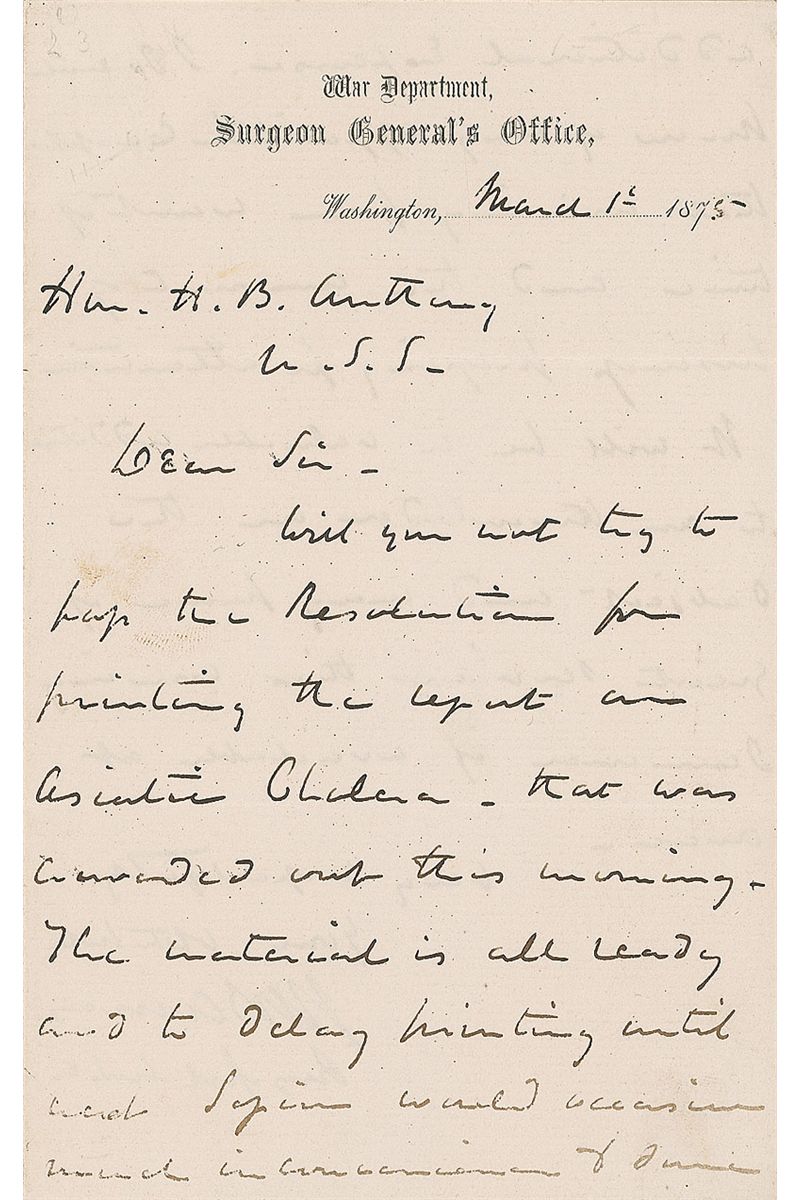 War Department,
Surgeon General's Office,
Washington, March 1st 1875
Hon. H. B. Anthony
U.S.S.
Dear Sir -
Will you not try to
pass the Resolution for
printing the report on
Asiatic Cholera - that was
crowded out this morning -
The material is all ready
and to delay printing until
next Session would occasion
much inconvenience & some